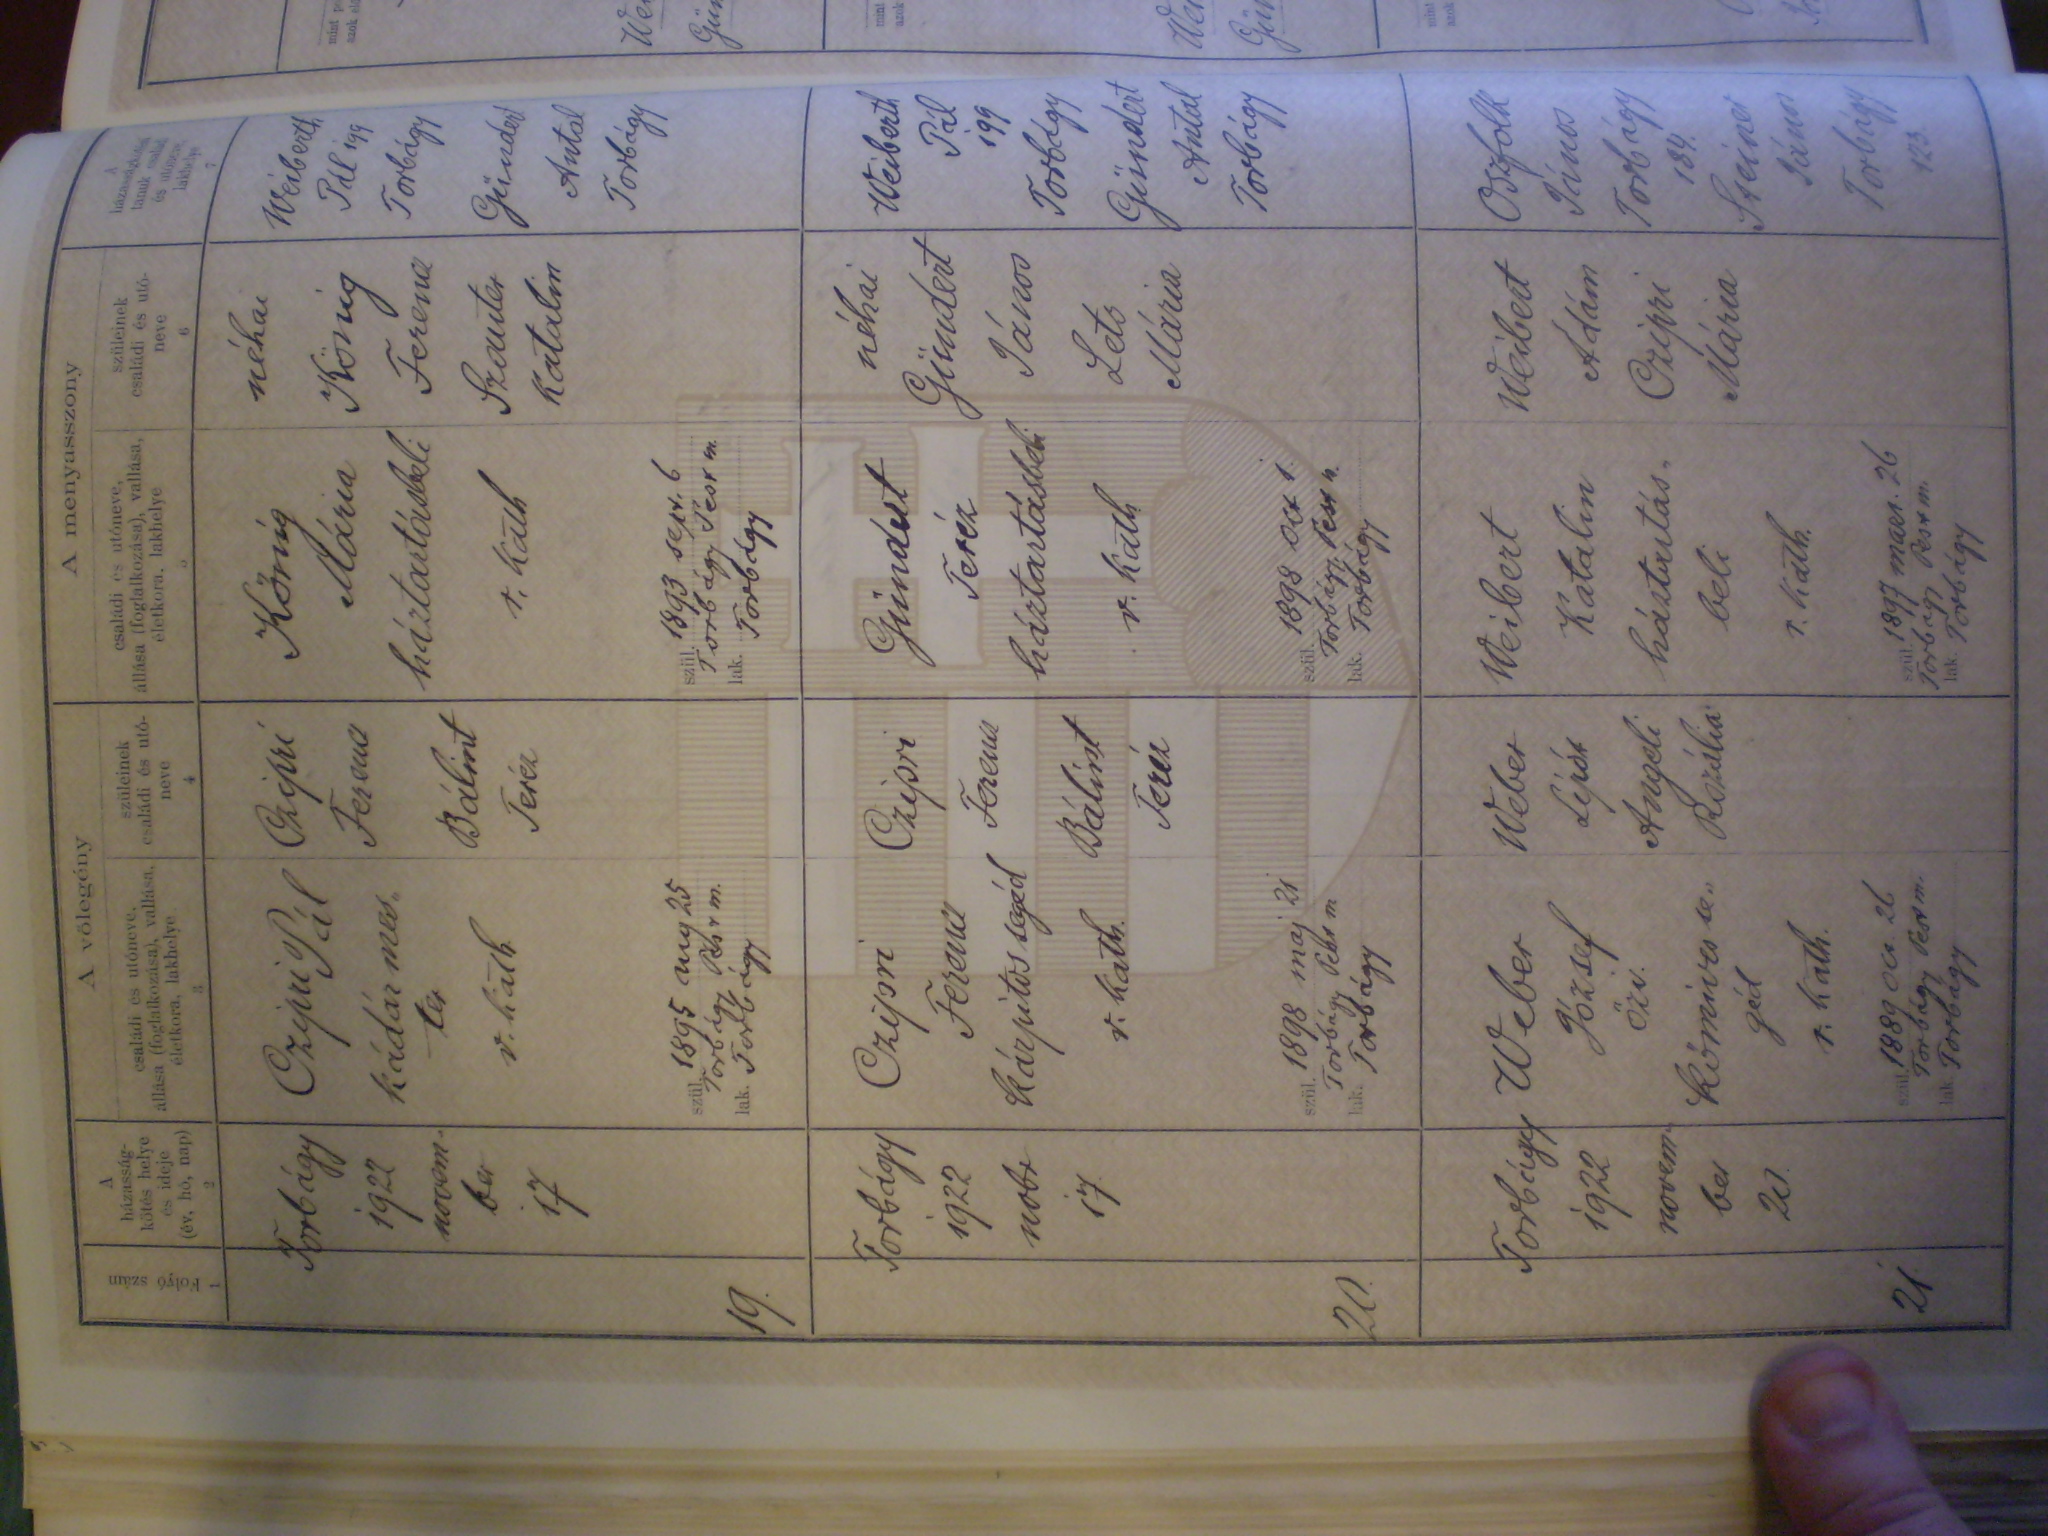 A vőlegény
A menyasszony
Folyó szám
1
A
házasság-
kötés helye
és ideje
(év, hó, nap)
2
családi és utóneve,
állása (foglalkozása), vallása,
életkora, lakhelye
3
szüleinek
családi és utó-
neve
4
családi és utóneve,
állása (foglalkozása), vallása,
életkora, lakhelye
5
szüleinek
családi és utó-
neve
6
A
házasságkötési
tanuk családi
és utóneve,
lakhelye
7
19.
Torbágy
1922
novem-
ber
17
Czipri Pál
kádár mes„
ter
r. kath
szül. 1895 aug 25
Torbágy Pest m.
lak. Torbágy
Czipri
Ferenc
Bálint
Teréz
König
Mária
háztartásbeli
r. kath
szül. 1893 sept. 6
Torbágy Pest m.
lak. Torbágy
néhai
König
Ferenc
Szauter
Katalin
Weiberth
Pál 199
Torbágy
Gündert
Antal
Torbágy
20.
Torbágy
1922
nobr
17.
Czipri
Ferenc
kárpitos segéd
r. kath.
szül. 1898 maj 21
Torbágy Pest m
lak. Torbágy
Czipri
Ferenc
Bálint
Teréz
Gündert
Teréz
háztartásbeli
r. kath
szül. 1898 oct 1.
Torbágy Pest m.
lak. Torbágy
néhai
Gündert
János
Mária
Weiberth
Pál
199
Torbágy
Gündert
Antal
Torbágy
21.
Torbágy
1922
novem-
ber
20.
Weber
József
özv.
kőmives se„
géd
r. kath.
szül. 1889 oct. 26
Torbágy Pest m.
lak. Torbágy
Weber
Lipót
Angeli
Rozália
Weibert
Katalin
háztartás„
beli
r. kath.
szül. 1897 marc. 26
Torbágy Pest m.
lak. Torbágy
Weibert
Ádám
Czipri
Mária
János
Torbágy
184.
Steiner
János
Torbágy
123.